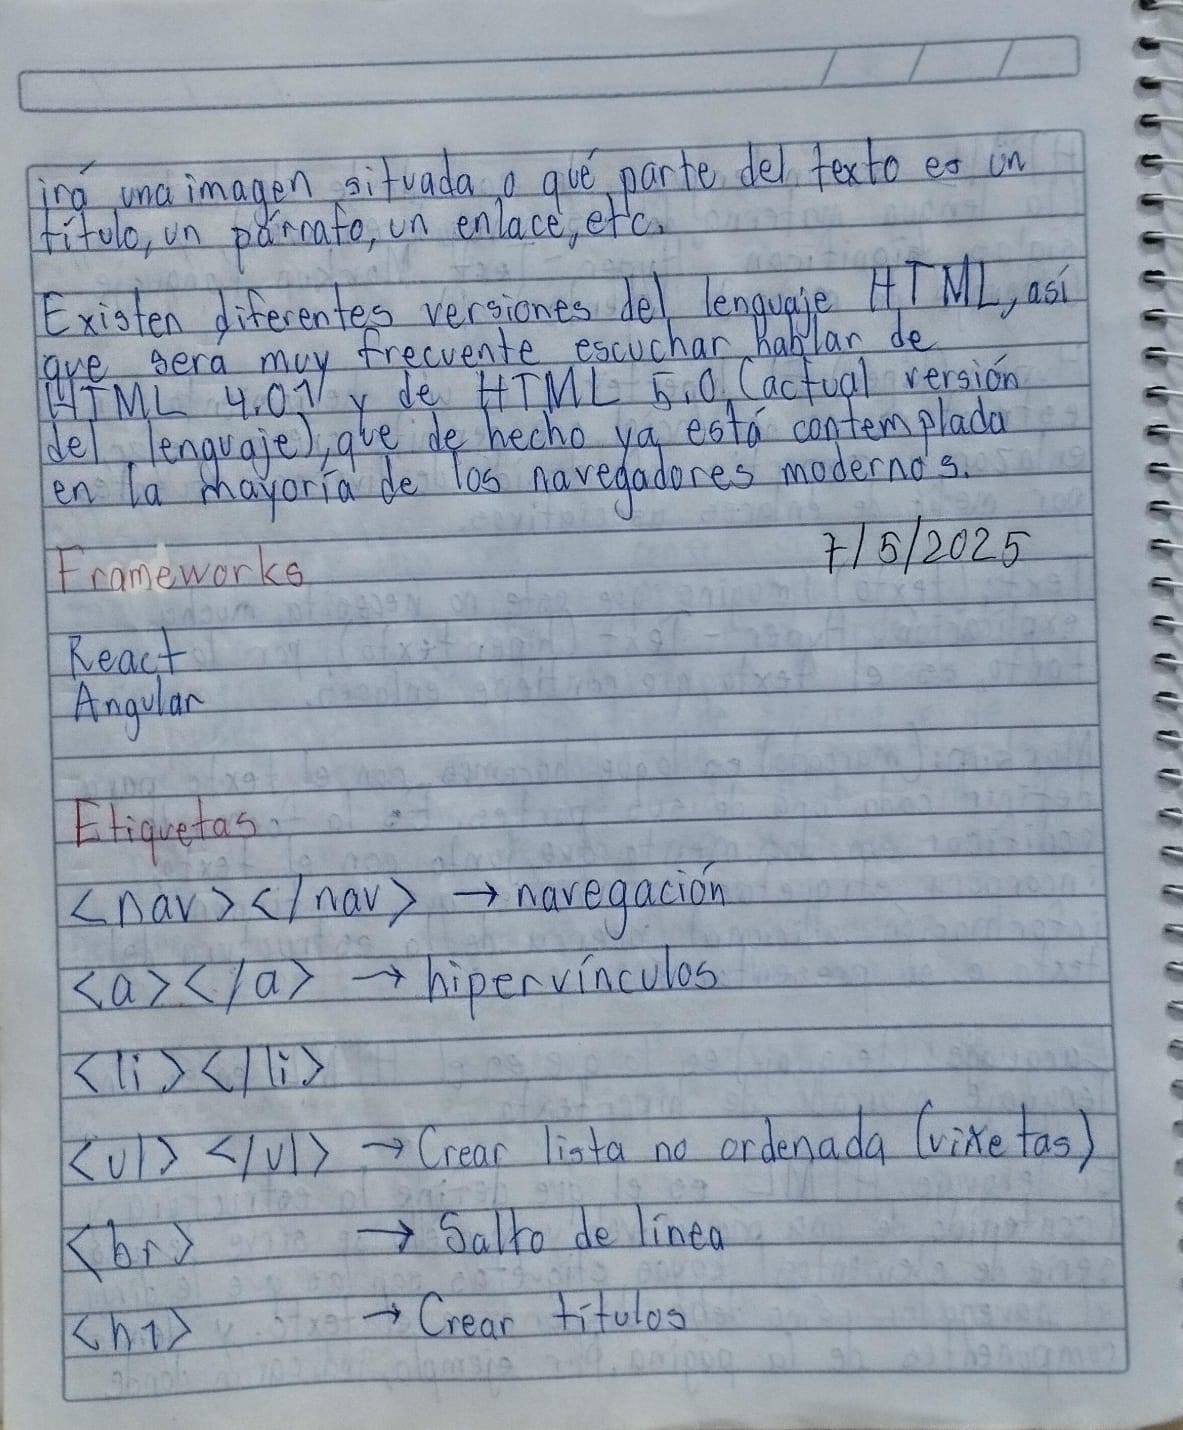 irá una imagen situada o qué parte del texto es un
título, un párrafo, un enlace, etc.
Existen diferentes versiones del lenguaje HTML, así
que sera muy frecuente escuchar hablar de
HTML 4.01 y de HTML 5.0 (actual versión
del lenguaje), que de hecho ya está contemplada
en la mayoría de los navegadores modernos.
Frameworks 7/5/2025
React
Angular
Etiquetas
<nav></nav> → navegación
<a></a> → hipervínculos
<li></li>
<ul> </ul> → Crear lista no ordenada (viñetas)
<br> → Salto de línea
<h1> → Crear títulos